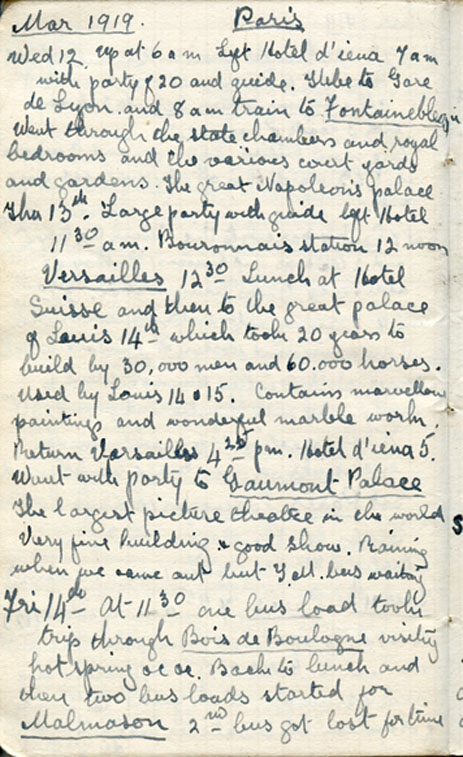 Mar 1919. Paris
Wed 12. Up at 6 am Left Hotel d'iena 7am
with party of 20 and guide. Tube to Gare
de Lyon and 8 am train to Fontainebleau
Went through the state chambers and royal
bedrooms and the various court yards
and gardens. The great Napoleon's palace
Thu 13th. Large party with guide left Hotel
11 30 am. station 12 noon
Versailles 12 30 Lunch at Hotel
Suisse and then to the great palace
of Louis 14th which took 20 years to
build by 30,000 men and 60.000 horses.
Used by Louis 14 & 15. Contains marvellous
paintings and wonderful marble work.
Return Versailles 4 25 pm. Hotel d'iena 5.
Went with party to Gaumont Palace
The largest picture theatre in the world
Very fine building & good show. Raining
when we came out but Y.M. bus waiting
Fri 14th At 11 30 one bus load took
trip through Bois de Boulogne visiting
hot spring &c &c. Back to lunch and
then two bus loads started for
Malmason 2nd bus got lost for time